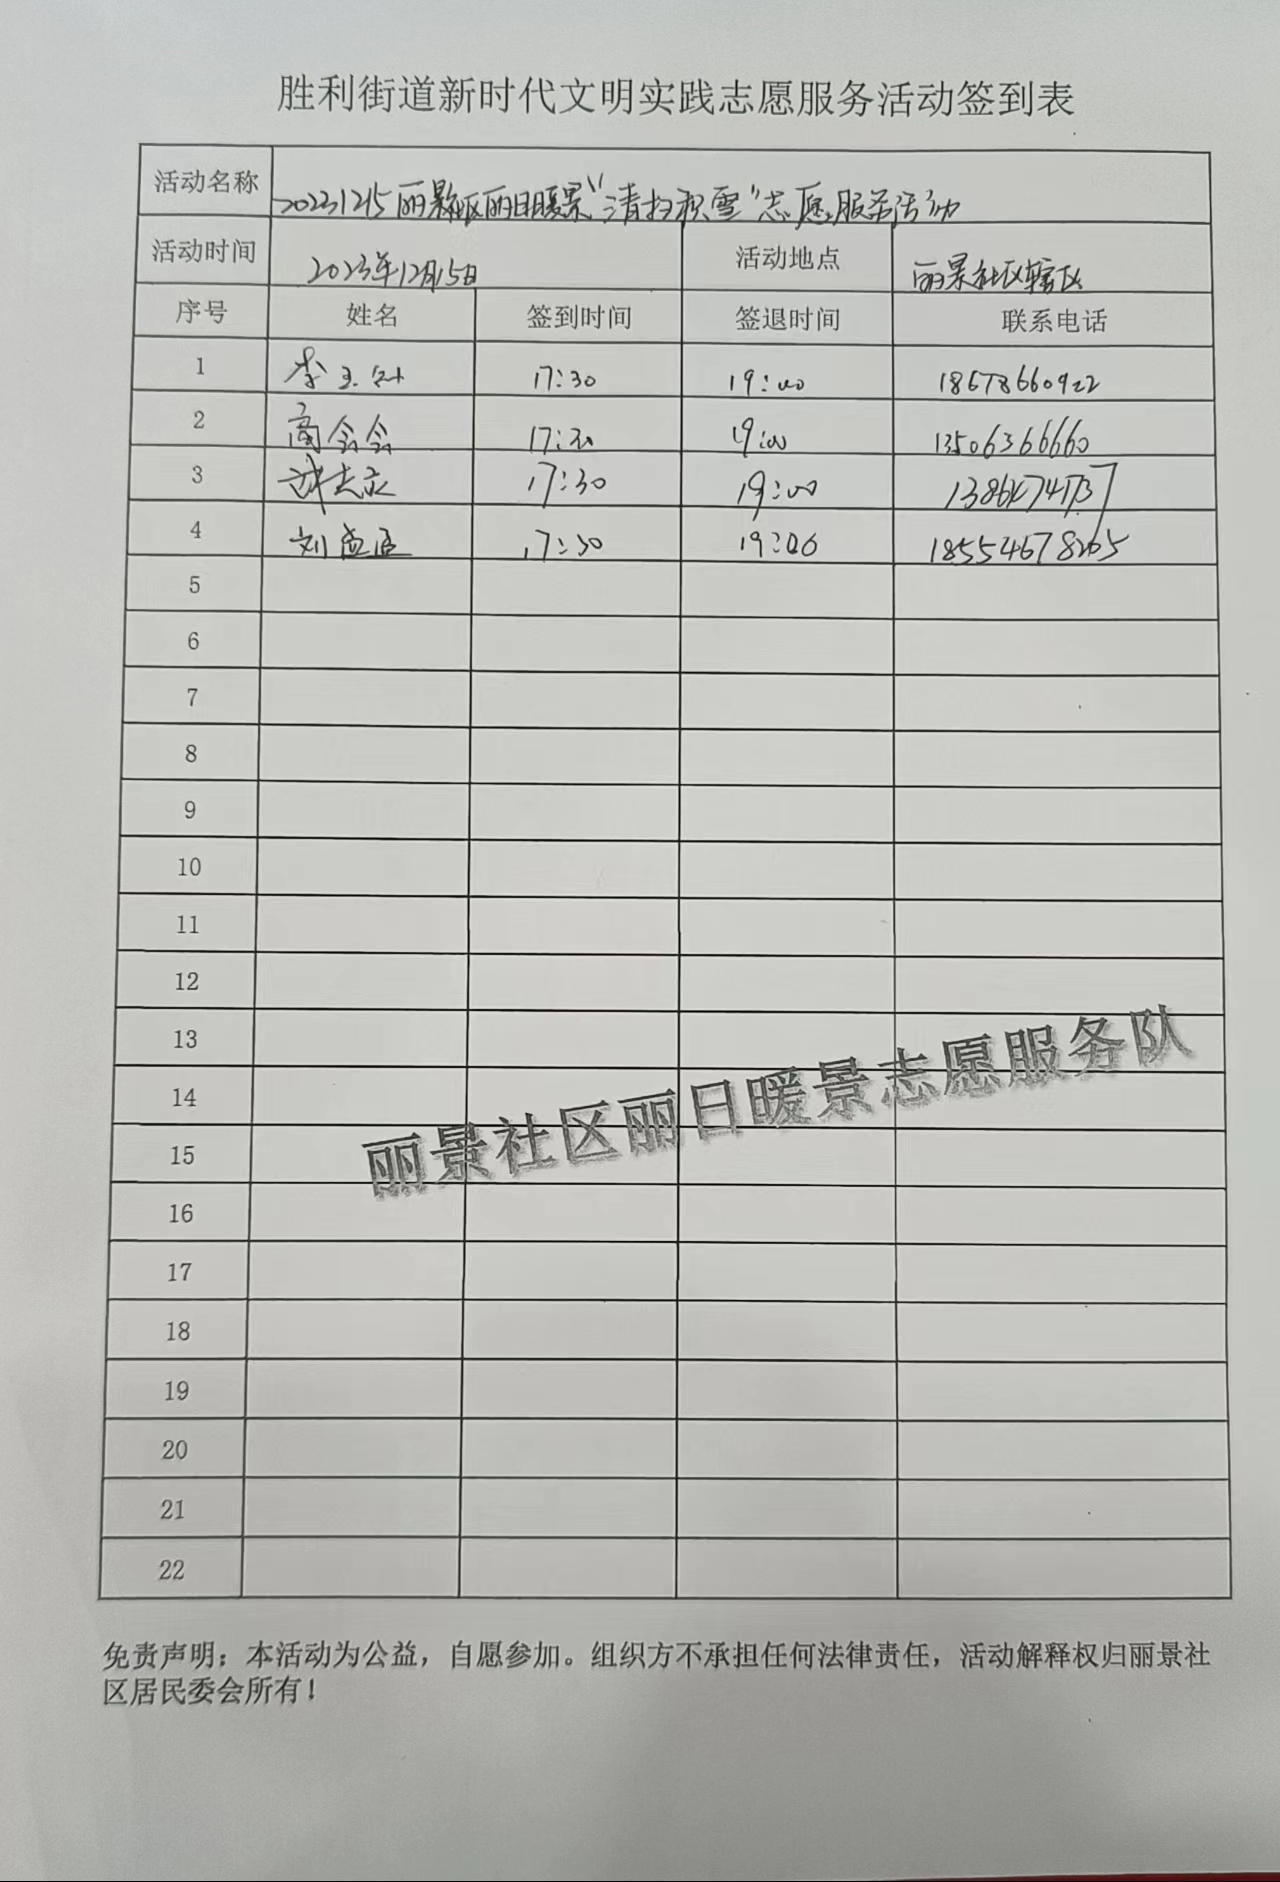 胜利街道新时代文明实践志愿服务活动签到表
活动名称 20231215丽景社区丽日暖景“清扫积雪”志愿服务活动
活动时间 2023年12月15日 活动地点 丽景社区辖区
序号 姓名 签到时间 签退时间 联系电话
1 李 17:30 19:00 18678660922
2 商会会 17:30 19:00 13506366660
3 17:30 19:00
4 刘孟 17:30 19:00 18554678265
5
6
7
8
9
10
11
12
13
14
15
16
17
18
19
20
21
22
丽景社区丽日暖景志愿服务队
免责声明：本活动为公益，自愿参加。组织方不承担任何法律责任，活动解释权归丽景社
区居民委会所有！